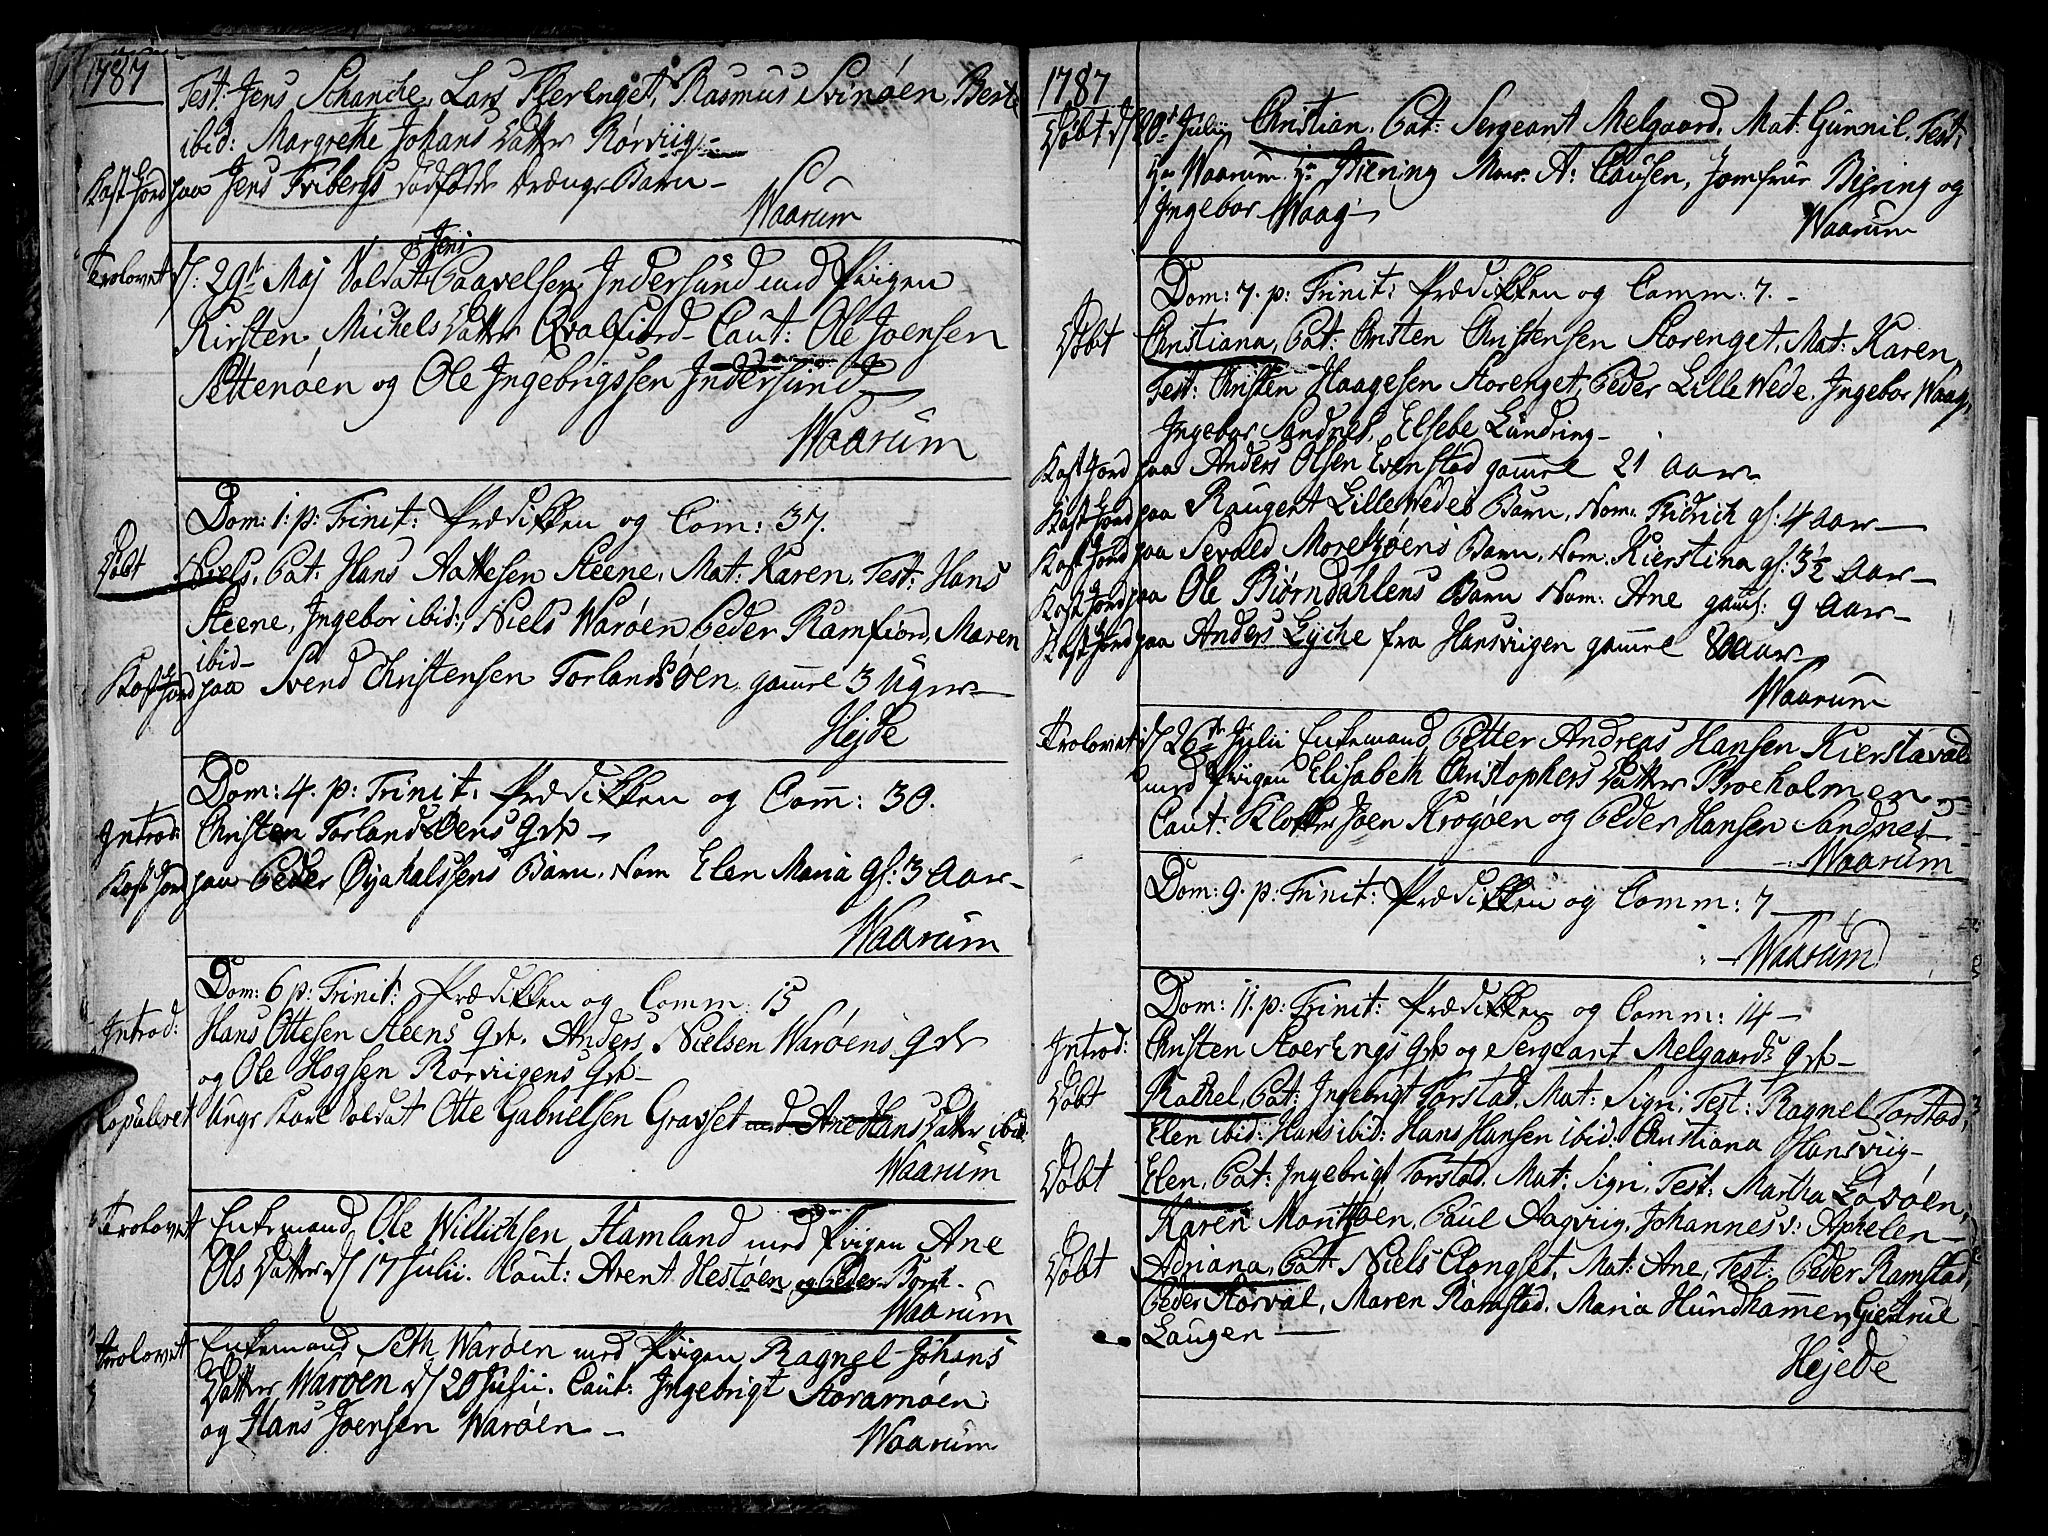 1787
Test: Jens Schanche, Lars Fierenget, Rasmus Svinøen, Berte
ibid: Margrethe Johans Datter Rørviig
Kast Jord paa Jens Fribergs dødfødde Drænge Barn
Waarum
Trolovet d: 29de Maj Soldat Jens Paavelsen Indersund med Pigen
Kirsten Michels Datter Qvalfiord Caut: Ole Joensen
Pettenøen og Ole Ingebrigssen Indersund
Waarum
Dom: 1. p: Trinit: Prædikken og Com: 37.
Døbt Niels. Pat: Hans Aattesen Steene, Mat: Karen, Test: Hans
Steene, Ingebor ibid:, Niels Warøen Peder Ramfiord, Maren
ibid
Kast Jord paa Svend Christensen Torlandsøen gamel 3 Uger
Hejde
Dom: 4. p: Trinit: Prædikken og Com: 30.
Introd: Christen Torlandsøens qvi
Kast Jord paa Peder Øyahalssens Barn, Nom Elen Maria gl: 3 Aar
Waarum
Dom: 6 p: Trinit: Prædikken og Comm: 15
Introd: Hans Ottesen Steens qvi. Anders Nielsen Warøens qvi
og Ole Hogsen Rørviigens qvi
Copuleret Unge Karl Soldat Otte Gabrielsen Gravset med Ane Hans Datter ibid
Waarum
Trolovet Enkemand Ole Willichsen Hamland med Pigen Ane
Ols Datter d 17 Julii. Caut: Arent Hestøen og Peder Borch
Waarum
Trolovet Enkemand Seth Warøen med Pigen Ragnel Johans
Datter Warøen d 20 Julii. Caut: Ingebrigt Storarnøen
og Hans Joensen Warøen
Waarum
1787
Døbt d 20de Julij Christian, Pat: Sergeant Melgaard, Mat: Gunnil, Test:
Hr Waarum Hr Biering Monr: A: Clausen, Jomfrue Biering og
Ingebor Waag
Waarum
Dom: 7. p: Trinit: Prædikken og Comm: 7.
Døbt Christiana, Pat: Christen Christensen Storenget, Mat: Karen,
Test: Christen Haagesen Storenget, Peder Lille Wede, Ingebor Waag,
Ingebor Sandnes, Elsebe Lundring
Kast Jord paa Anders Olsen Evenstad gamel 21 Aar
Kast Jord paa Raugert Lille Wedes Barn, Nom: Fridrich gl: 4 Aar
Kast Jord paa Sevald Moretzøens Barn, Nom: Kierstina gl: 3½ Aar
Kast Jord paa Ole Biørndahlens Barn Nom: Ane gaml: 9 Aar
Kast Jord paa Anders Lyche fra Hansviigen gamel 80 Aar
Waarum
Trolovet d 26de Julii Enkemand Petter Andreas Hansen Kierstavad
med Pigen Elisabeth Christophers Datter Broeholmen
Caut: Klokker Joen Krogøen og Peder Hansen Sandnes
Waarum
Dom: 9. p: Trinit: Prædikken og Comm: 7
Waarum
Dom: 11. p: Trinit: Prædikken og Comm: 14
Introd: Christen StoerEngs qvi og Sergeant Melgaards qvi
Døbt Rachel, Pat: Ingebrigt Torstad, Mat: Sigri, Test: Ragnel Torstad,
Elen ibid: Hans ibid: Hans Hansen ibid: Christiana Hansviig
Døbt Elen, Pat: Ingebrigt Torstad. Mat: Sigri, Test: Martha Løsøen,
Karen Moritzøen, Paul Aagviig, Johannes v: Aphelen
Døbt Adriana, Pat: Niels Elongset, Mat: Ane, Test: Peder Ramstad,
Peder Storval, Maren Ramstad, Maria Hundhammer, Giertrue
Laugen
Hejede